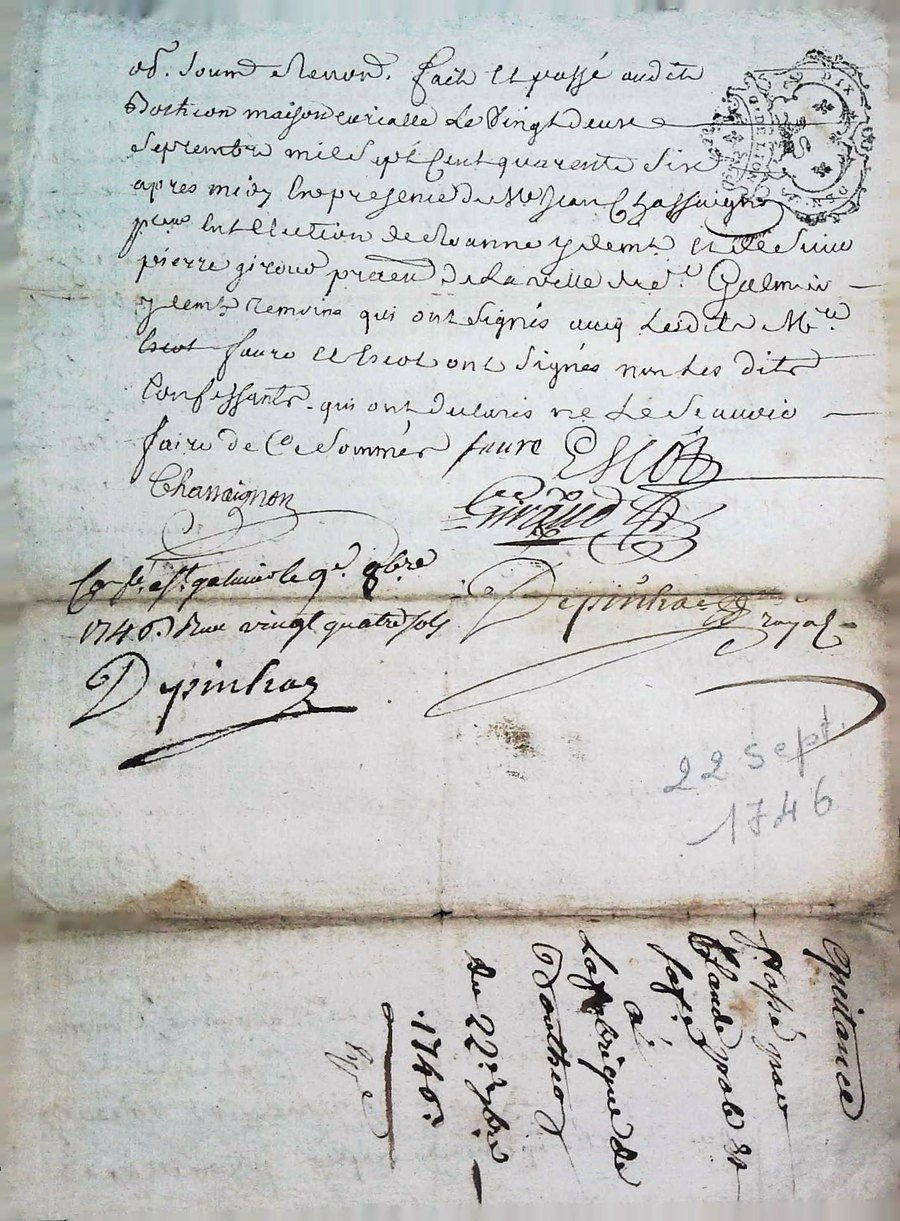 fait et passé audit
maison curialle le vingt deuxe
septembre mil sept cent quarente six
apres midy en presence de Me Jean Chassaignon
en l'election de Roanne y demt et de sieur
pierre giroud praticien de la ville de st Galmier
y demt temoins qui ont signés avcq lesdits Mre
Escot faure et Escot ont signés non les dits
confessants qui ont declarés ne le scavoir
faire de ce sommés faure Escot
Chassaignon
Giraud
st galmier le 9e 8bre
1746 Reçu vingt quatre sols
Depinhac
Depinhac
royal
DIX
G. DE LION
GEN.
22 sept.
1746
Quitance
passé par
Claude
à
La fabrique de
Doutheo
Du 22e 7bre
1746